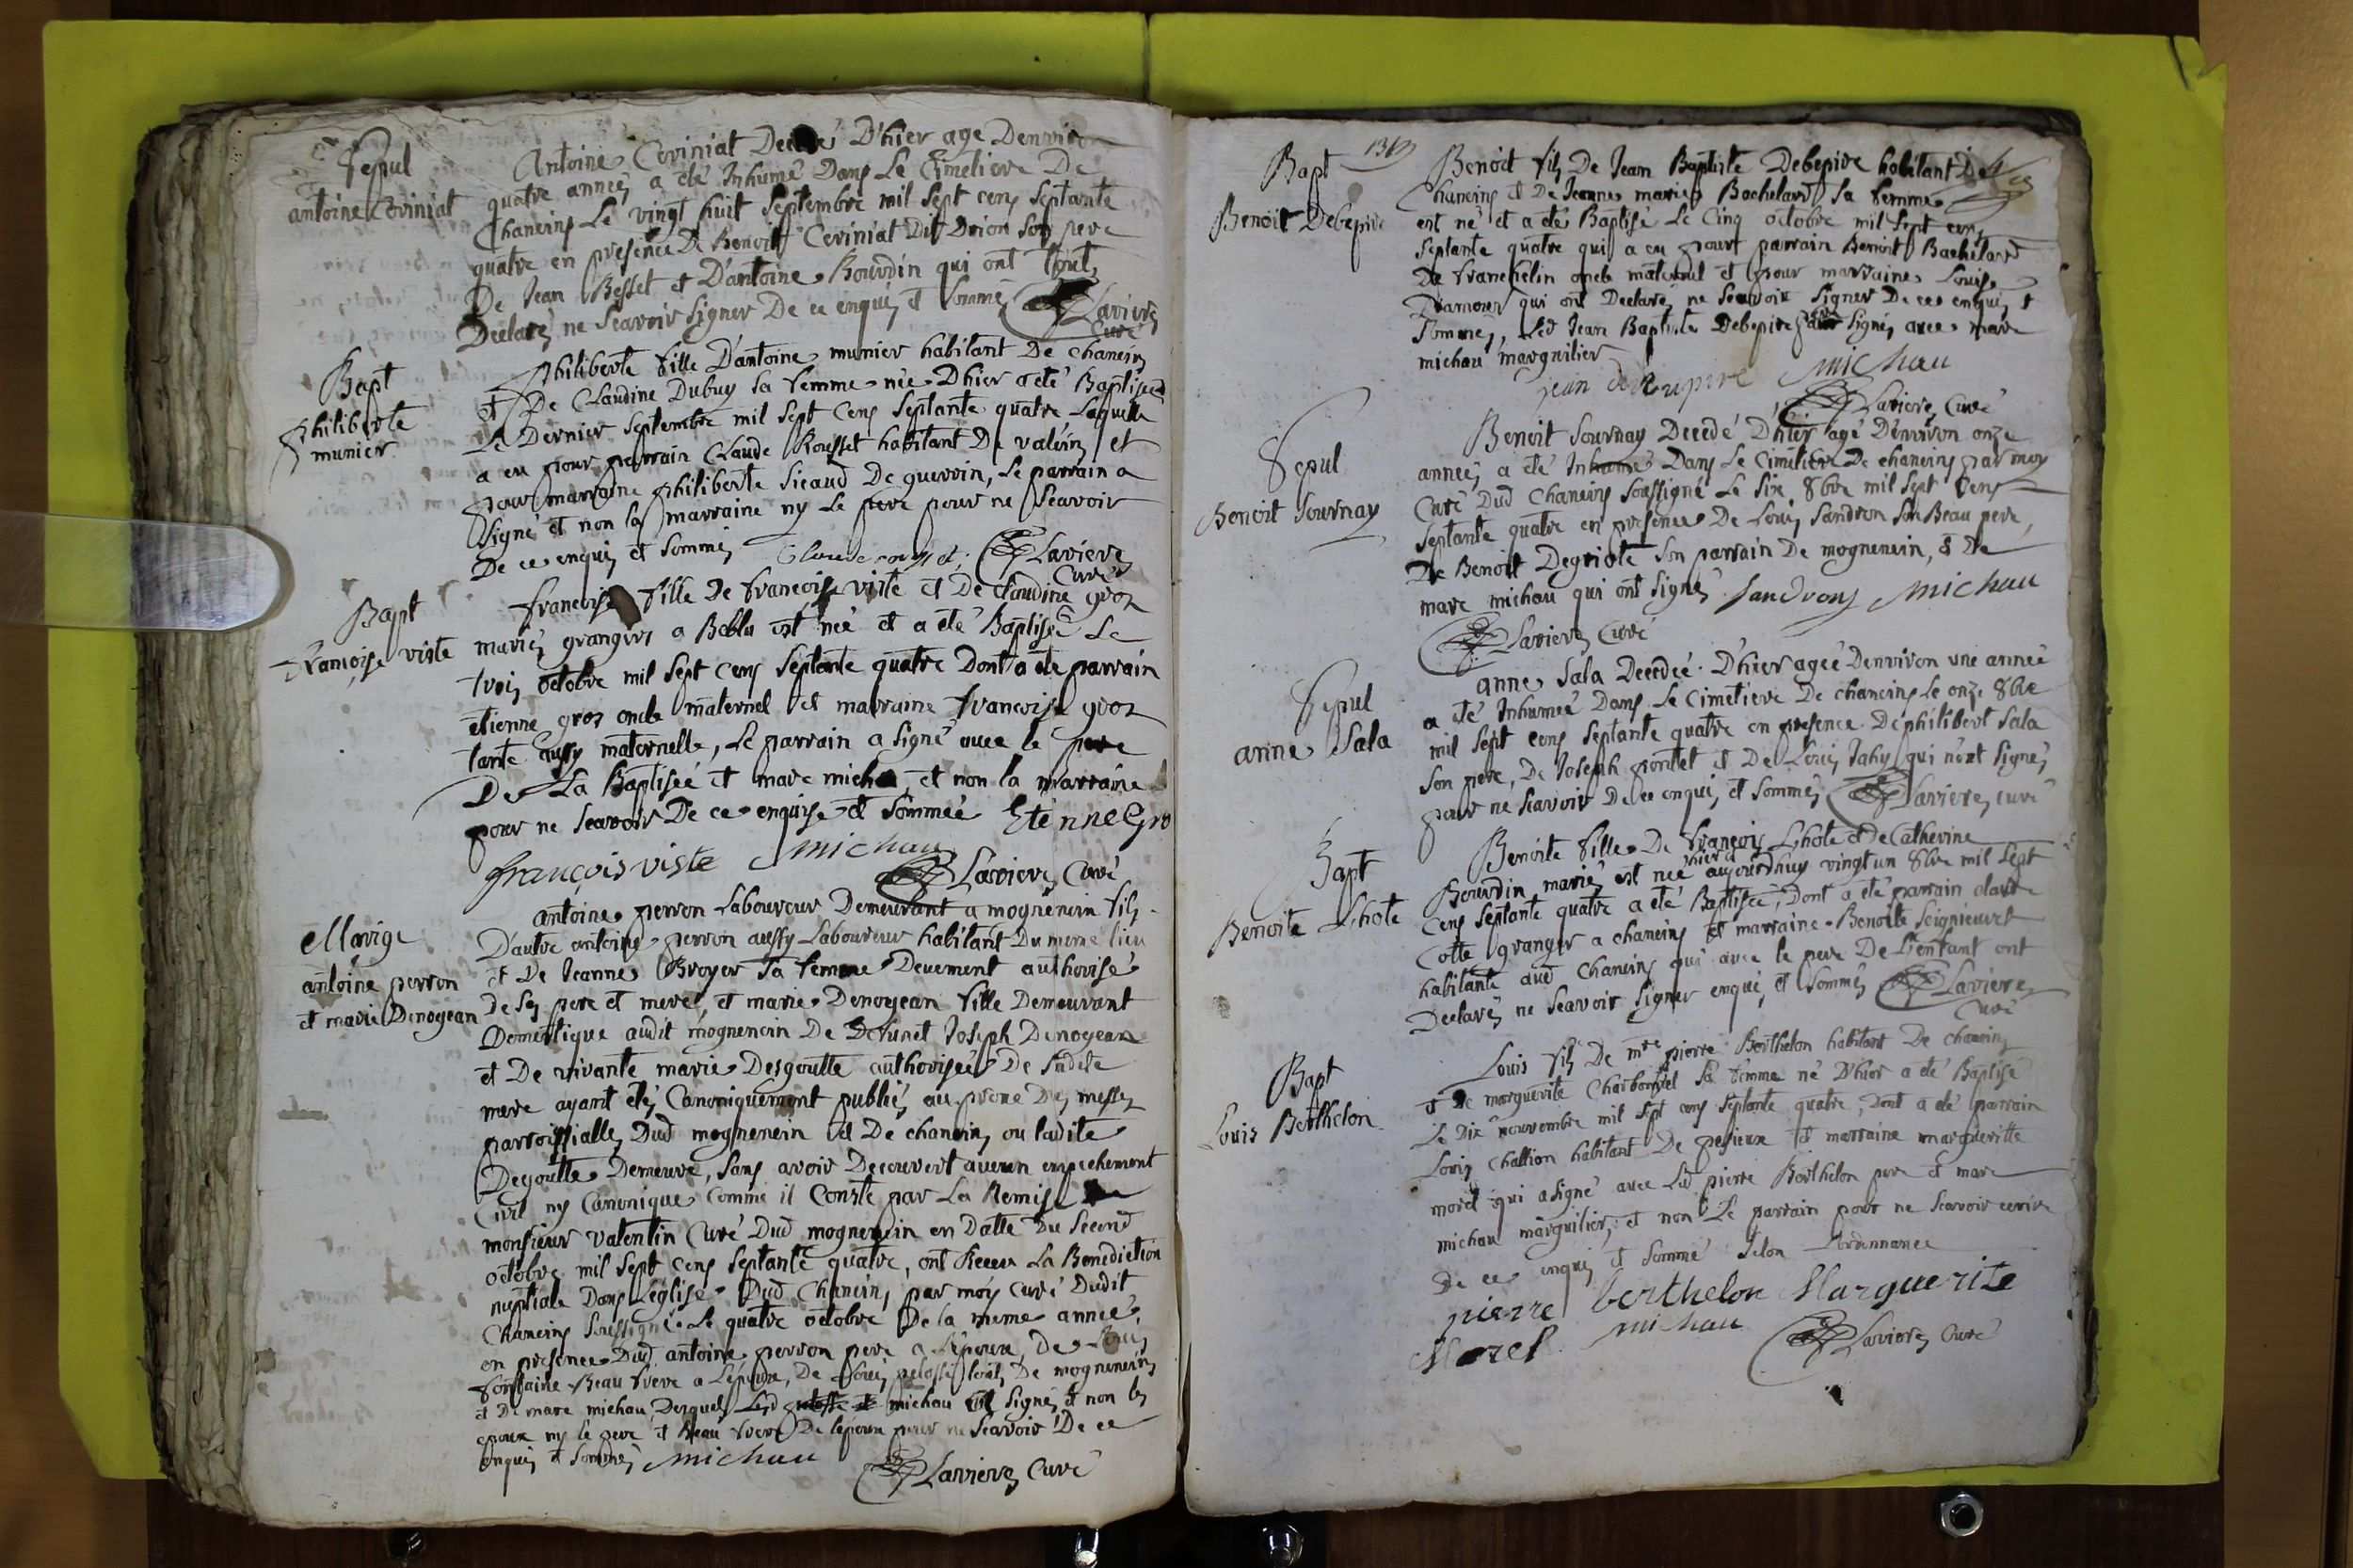 Sepul
antoine Coviniat
Antoine Coviniat Decedé D'hier age Denviron
quatre années a été Inhumé Dans Le Cimetiere De
Chaneins Le vingt huit Septembre mil Sept cens Septante
quatre en presence De Benoit Coviniat Dit Drion Son pere
De Jean Besset et D'antoine Bourdin qui ont tous
Declarés ne Scavoir Signer De ce enquis et Sommés Laviere
Curé
Bapt
philiberte
munier
philiberte fille D'antoine munier habitant De chaneins
et De Claudine Dubuy sa femme née D'hier a été Baptisée
Le Dernier Septembre mil Sept Cens Septante quatre Laquelle
a eu pour parrain Claude Rousset habitant De valeins et
pour marraine philiberte Sicaud De guerrin, Le parrain a
Signé et non la marraine ny Le pere pour ne Scavoir
De ce enquis et Sommés Claude rousset Laviere
Curé
Bapt
francoise viste
francoise fille de francois viste et De claudine gros
mariés grangers a Beblu est née et a été Baptisée Le
trois octobre mil Sept Cens Septante quatre Dont a été parrain
etienne gros oncle maternel et marraine francoise gros
tante aussy maternelle, Le parrain a Signé avec le pere
De La Baptisée et marc michau, et non la marraine
pour ne Scavoir De ce enquise et Sommée Etienne Gro
françois viste michau
Laviere Curé
Mariage
antoine perron
et marie Denoyean
antoine perron Laboureur Demeurant a mognenein fils
D'autre antoine perron aussy Laboureur habitant Du meme lieu
et De Jeanne Broyer Sa femme Deuement authorisé
de Ses pere et mere, et marie Denoyean fille Demeurant
Domestique audit mognenein De Defunct Joseph Denoyean
et De vivante marie Desgoutte authorisée De Sadite
mere ayant étés Canoniquement publiés au prone Des messes
parroissialles Dud mognenein et De chaneins ou ladite
Degoutte Demeure, Sans avoir Decouvert aucun empechement
Civil ny Canonique Comme il Conste par La Remise De
monsieur valentin Curé Dud mognenein en Datte Du Second
octobre mil Sept cens Septante quatre, ont Receu La Benediction
nuptiale Dans L'église Dud Chaneins par moy curé Dudit
Chaneins Soussigné Le quatre octobre De la meme année
en presence Dud antoine perron pere a L'epoux, de Louis
fontaine Beau frere a L'epoux, De Louis pelosse tous De mognenein
et De marc michau, Desquels Led michau Signés et non les
epoux ny le pere et Beau frere De l'epoux pour ne Scavoir De ce
enquis et Sommés michau
Laviere Curé
Bapt
Benoit Debepire
Benoit fils De Jean Baptiste Debepire habitant De
Chaneins et De Jeanne marie Bachelard Sa femme
est né et a été Baptisé Le Cinq octobre mil Sept cens
Septante quatre qui a eu pour parrain Benoit Bachelard
De francchelin oncle maternel et pour marraine Louise
Damour qui ont Declarés ne Scavoir Signer De ce enquis et
Sommés, Led Jean Baptiste Debepire Signés avec marc
michau marguilier
michau
Laviere Curé
Sepul
Benoit Sournay
Benoit Sournay Decedé D'hier agé D'environ onze
années a été Inhumé Dans Le Cimetiere De chaneins par moy
Curé Dud Chaneins Soussigné Le Six 8bre mil Sept Cens
Septante quatre en presence De Louis Sandron Son Beau pere,
De Benoit Degriote Son parrain De mognenein, & De
marc michau qui ont Signés Sandron michau
Laviere Curé
Sepul
anne Sala
anne Sala Decedée D'hier ageé Denviron une année
a été Inhumée Dans Le Cimetiere De chaneins le onze 8bre
mil Sept cens Septante quatre en presence De philibert Sala
Son pere, De Joseph pontet et De Louis Jahy qui n'ont Signés
pour ne Scavoir De ce enquis et Sommés Laviere curé
Bapt
Benoite Lhote
Benoite fille De françois Lhote et De Catherine
Bourdin mariés est née hier et aujourdhuy vingt un 8bre mil Sept
Cens Septante quatre a été Baptisée, Dont a été parrain claude
Cotte granger a chaneins et marraine Benoite Seignieuret
habitante aud Chaneins qui avec le pere De L'enfant ont
Declarés ne Scavoir Signer enquis et Sommés Laviere
Curé
Bapt
Louis Berthelon
Louis fils De mre pierre Berthelon habitant De chaneins
et De marguerite Charbonnel Sa femme né D'hier a été Baptisé
Le Dix nouvembre mil Sept cens Septante quatre, Dont a été parrain
Louis Chattion habitant De pesieux et marraine marguerite
morel qui a signé avec Led pierre Berthelon pere et marc
michau marguilier, et non Le parrain pour ne Scavoir ecrire
De ce enquis et Sommé Selon Lordonnance
pierre berthelon Marguerite
Morel michau
Laviere Curé